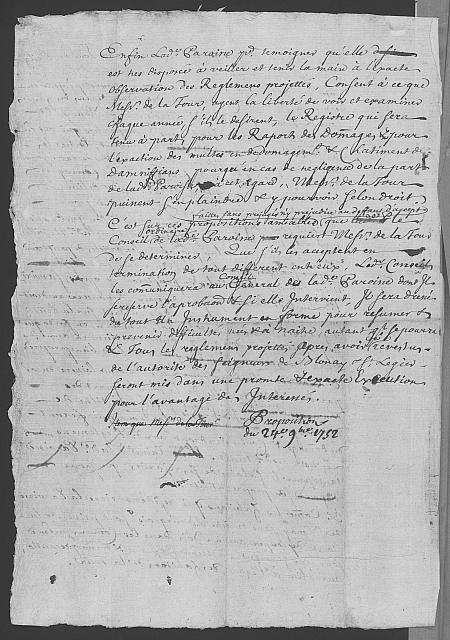 Enfin Lad.e Paroisse p.r temoigner qu'elle
est tres disposée à veiller et tenir la main à l'exacte
observation des Reglemens projettés, Consent à ce que
Mess.rs de la Tour, ayent la liberté de voir et examiner
chaque année, s'ils le desirent, le Registre qui sera
tenu à part, pour les Raports des Domages, & pour
l'exaction des multes en dedomagem.t & Chatiment des
Damnifians, pourque en cas de negligence de la part
de lad.e Paroisse à cet egard, Mess.rs de la Tour
puissent s'en plaindre & y pourvoir selon droit.
C'est sur ces Propositions equitables
faites sans prejudice au defaut d'accept.
que le
Conseil de lad.e Paroisse requiert Mess.rs de la Tour
de se determiner. Que s'ils les acceptent en
termination de tout different entr'eux, Led.t Conseil
les communiquera au Conseil General de lad.e Paroisse dont Il
reserve l'aprobaon & si elle Intervient, Il sera dressé
du tout un Instrument en forme pour resumer &
prevenir difficultés, nées & à naitre, autant qu'il se pourra
& Tous les reglemens projettés, apres avoir revestus
de l'autorité des Seigneurs de Blonay & S.t Legier
seront mis dans une promte & exacte execution
pour l'avantage des Interessés.
Proposition
du 24.e 9.bre 1752